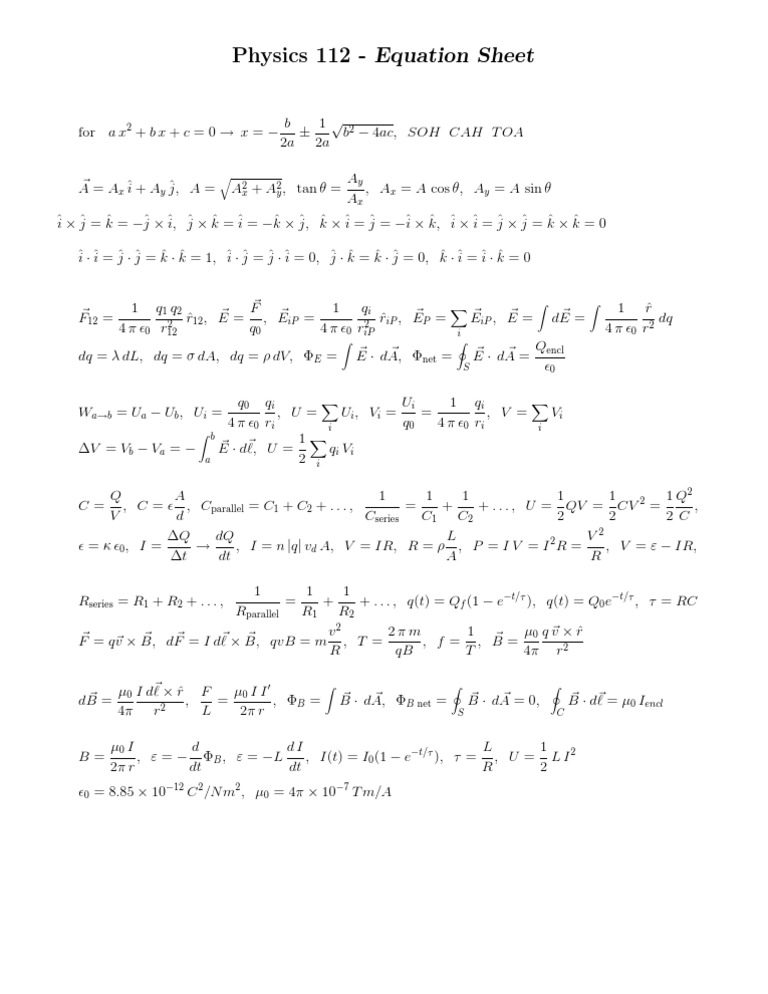 Physics 112 - Equation Sheet
for a x² + b x + c = 0 → x = −\frac{b}{2a} ± \frac{1}{2a}\sqrt{b² − 4ac}, SOH CAH TOA
\vec{A} = A_x \hat{i} + A_y \hat{j}, A = \sqrt{A_x^2 + A_y^2}, tan θ = \frac{A_y}{A_x}, A_x = A cos θ, A_y = A sin θ
\hat{i} × \hat{j} = \hat{k} = −\hat{j} × \hat{i}, \hat{j} × \hat{k} = \hat{i} = −\hat{k} × \hat{j}, \hat{k} × \hat{i} = \hat{j} = −\hat{i} × \hat{k}, \hat{i} × \hat{i} = \hat{j} × \hat{j} = \hat{k} × \hat{k} = 0
\hat{i} · \hat{i} = \hat{j} · \hat{j} = \hat{k} · \hat{k} = 1, \hat{i} · \hat{j} = \hat{j} · \hat{i} = 0, \hat{j} · \hat{k} = \hat{k} · \hat{j} = 0, \hat{k} · \hat{i} = \hat{i} · \hat{k} = 0
\vec{F}_{12} = \frac{1}{4 π ε_0} \frac{q_1 q_2}{r_{12}^2} \hat{r}_{12}, \vec{E} = \frac{\vec{F}}{q_0}, \vec{E}_{iP} = \frac{1}{4 π ε_0} \frac{q_i}{r_{iP}^2} \hat{r}_{iP}, \vec{E}_P = \sum_i \vec{E}_{iP}, \vec{E} = ∫ d\vec{E} = ∫ \frac{1}{4 π ε_0} \frac{\hat{r}}{r^2} dq
dq = λ dL, dq = σ dA, dq = ρ dV, Φ_E = ∫ \vec{E} · d\vec{A}, Φ_{net} = ∮_S \vec{E} · d\vec{A} = \frac{Q_{encl}}{ε_0}
W_{a→b} = U_a − U_b, U_i = \frac{q_0}{4 π ε_0} \frac{q_i}{r_i}, U = \sum_i U_i, V_i = \frac{U_i}{q_0} = \frac{1}{4 π ε_0} \frac{q_i}{r_i}, V = \sum_i V_i
ΔV = V_b − V_a = −∫_a^b \vec{E} · d\vec{ℓ}, U = \frac{1}{2} \sum_i q_i V_i
C = \frac{Q}{V}, C = ε\frac{A}{d}, C_{parallel} = C_1 + C_2 + . . . , \frac{1}{C_{series}} = \frac{1}{C_1} + \frac{1}{C_2} + . . . , U = \frac{1}{2}QV = \frac{1}{2}CV² = \frac{1}{2}\frac{Q²}{C},
ε = κ ε_0, I = \frac{ΔQ}{Δt} → \frac{dQ}{dt}, I = n |q| v_d A, V = IR, R = ρ\frac{L}{A}, P = I V = I²R = \frac{V²}{R}, V = ε − IR,
R_{series} = R_1 + R_2 + . . . , \frac{1}{R_{parallel}} = \frac{1}{R_1} + \frac{1}{R_2} + . . . , q(t) = Q_f(1 − e^{−t/τ}), q(t) = Q_0e^{−t/τ}, τ = RC
\vec{F} = q\vec{v} × \vec{B}, d\vec{F} = I d\vec{ℓ} × \vec{B}, qvB = m\frac{v²}{R}, T = \frac{2 π m}{qB}, f = \frac{1}{T}, \vec{B} = \frac{μ_0}{4π} \frac{q \vec{v} × \hat{r}}{r²}
d\vec{B} = \frac{μ_0}{4π} \frac{I d\vec{ℓ} × \hat{r}}{r²}, \frac{F}{L} = \frac{μ_0 I I′}{2π r}, Φ_B = ∫ \vec{B} · d\vec{A}, Φ_{B net} = ∮_S \vec{B} · d\vec{A} = 0, ∮_C \vec{B} · d\vec{ℓ} = μ_0 I_{encl}
B = \frac{μ_0 I}{2π r}, ε = −\frac{d}{dt}Φ_B, ε = −L \frac{d I}{dt}, I(t) = I_0(1 − e^{−t/τ}), τ = \frac{L}{R}, U = \frac{1}{2} L I²
ε_0 = 8.85 × 10^{−12} C²/Nm², μ_0 = 4π × 10^{−7} Tm/A